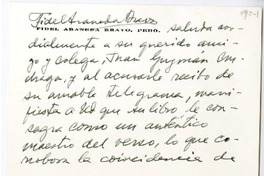 Fidel Araneda Bravo saluda cor-
FIDEL ARANEDA BRAVO, PBRO.
dialmente a su querido ami-
go y colega, Juan Guzmán Cru-
chaga, y al acusarle recibo de
su amable telegrama, mani-
fiesta a Ud que su libro le con-
sagra como un auténtico
maestro del verso, lo que co-
rrobora la coincidencia de